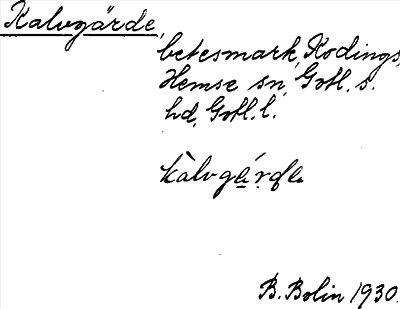 Kalvgärde,
betesmark, Kodings,
Hemse sn, Gotl. s.
hd, Gotl. l.
kàlvgä́rdę
B. Bolin 1930.